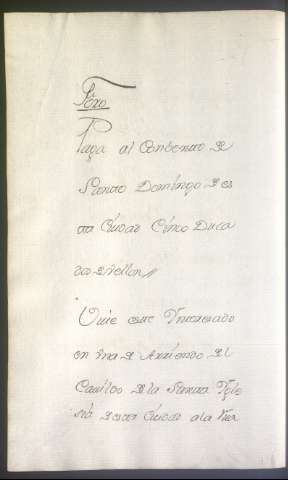 Foxo
Paga al Conbento de
Santo Domingo de es
ta Ciudad Cinco Duca
dos de vellon
Vive este Ynteresado
en una de
Cavildo de la Santa Ygle
sia de esta Ciudad a la